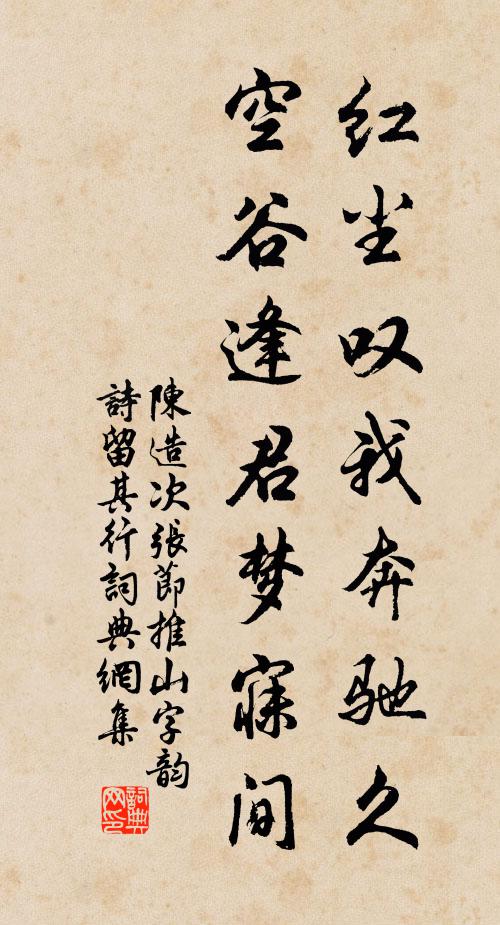 红尘叹我奔驰久
空谷逢君梦寐间
陳造次張節推山字韵
詩留其行詞典網集
詞典网印